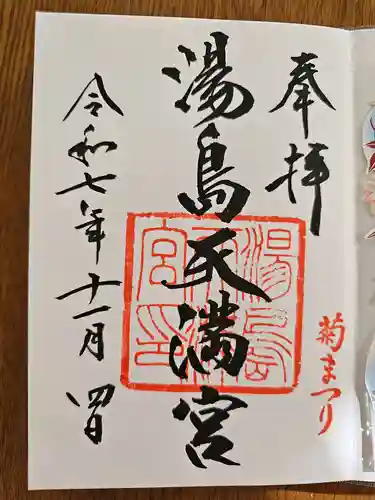 奉拝
菊まつり
湯島天満宮
令和七年十一月四日